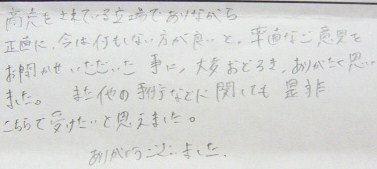 商売をされている立場でありながら
正直に、今は付もしない方が良いと、率直なご意見を
お聞かせいただいた事に、大変おどろき、ありがたく思い
ました。また他の事などに関しても是非
こちらで受けたいと思えました。
ありがとうございました。